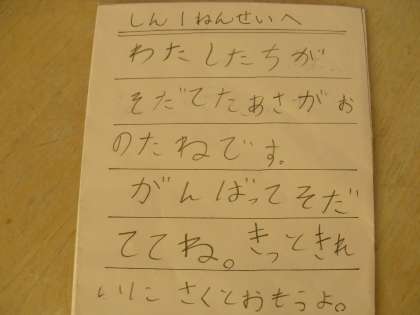 しん1ねんせいへ
わたしたちが
そだてたあさがお
のたねです。
がんばってそだ
ててね。きっときれ
いにさくとおもうよ。